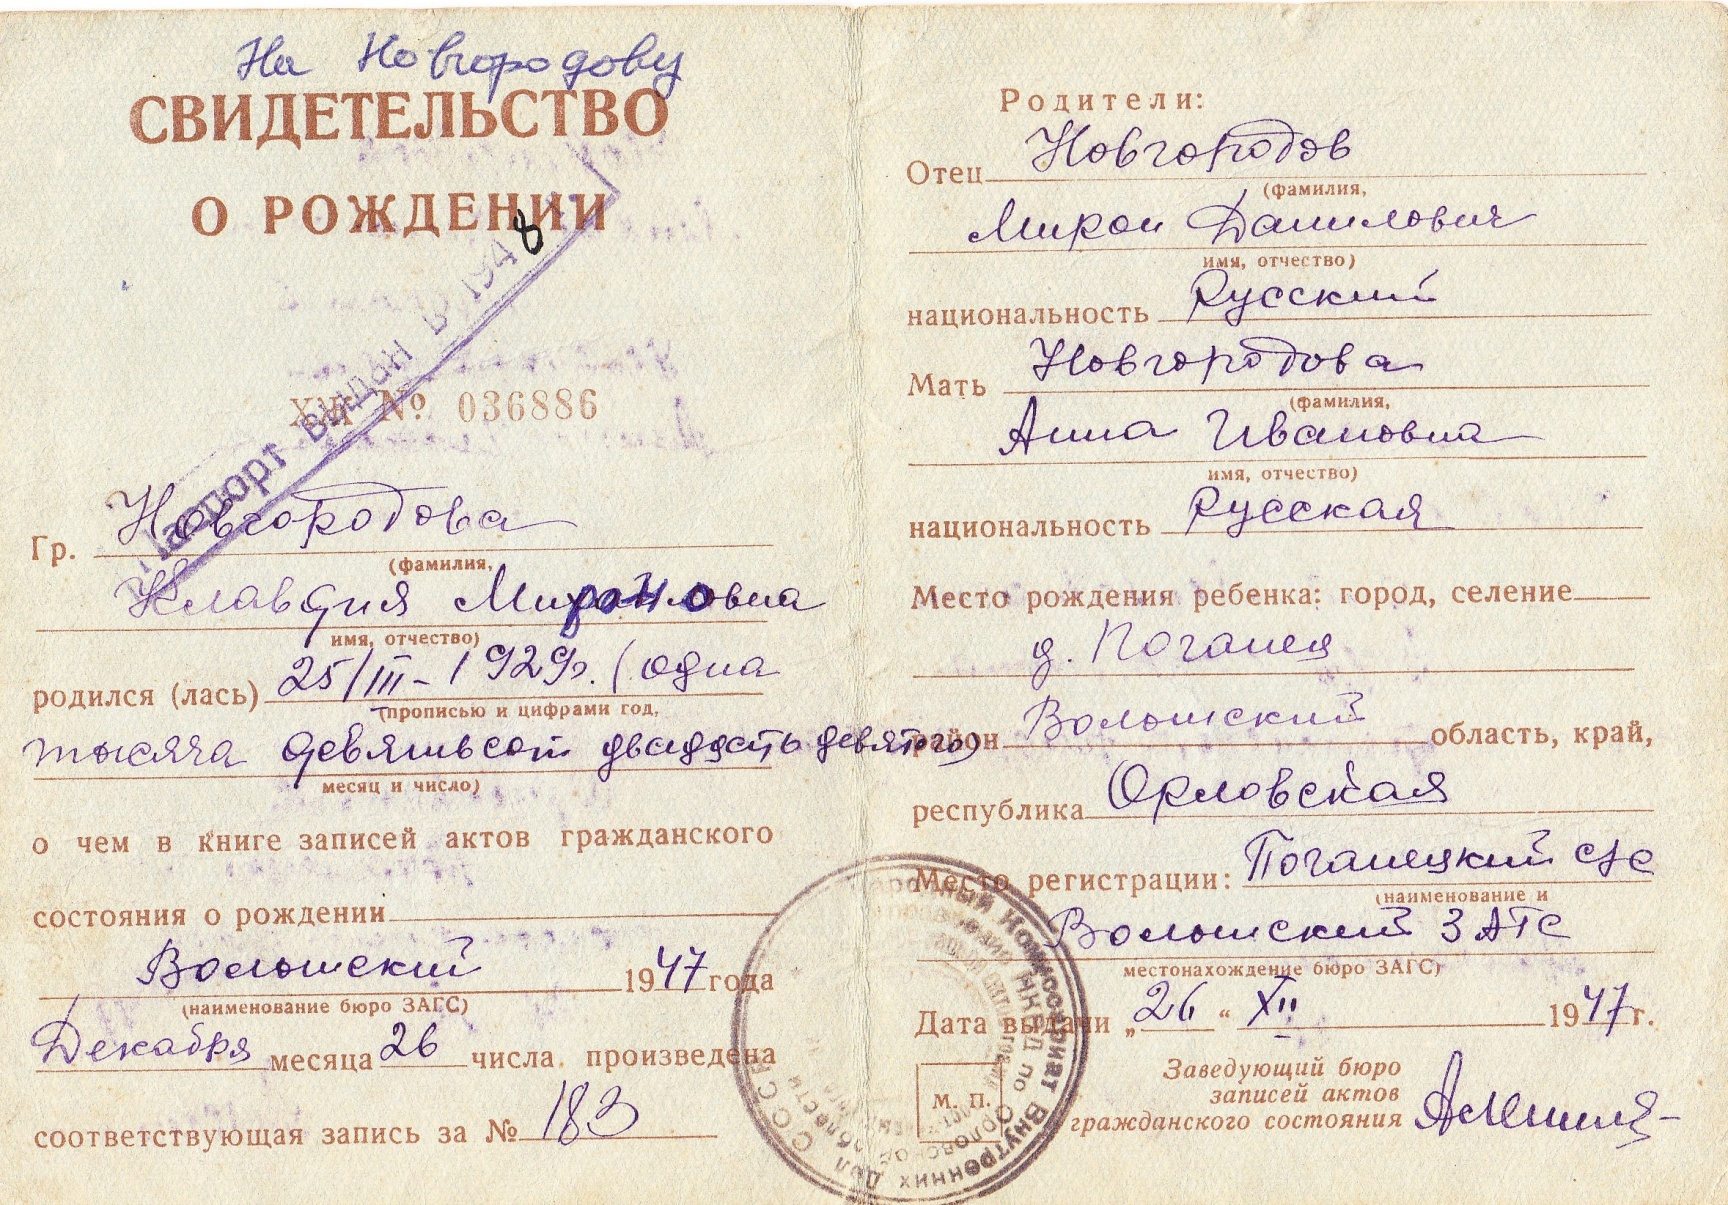 На Новгородову
СВИДЕТЕЛЬСТВО
О РОЖДЕНИИ
Паспорт выдан в 1948
№ 036886
Гр. Новгородова
(фамилия,
Клавдия Мироновна
имя, отчество)
родился (лась) 25/III-1929г. (одна
(прописью и цифрами год,
тысяча девятьсот двадцать девятого)
месяц и число)
о чем в книге записей актов гражданского
состояния о рождении
Волошский 1947 года
(наименование бюро ЗАГС)
Декабря месяца 26 числа произведена
соответствующая запись за № 183
Родители:
Отец Новгородов
(фамилия,
Мирон Данилович
имя, отчество)
национальность Русский
Мать Новгородова
(фамилия,
Анна Ивановна
имя, отчество)
национальность Русская
Место рождения ребенка: город, селение
д. Поганец
район Волошский область, край,
республика Орловская
Место регистрации: Поганецкий с/с
(наименование и
Волошский ЗАГС
местонахождение бюро ЗАГС)
Дата выдачи „26“ XII 1947 г.
Заведующий бюро
записей актов
гражданского состояния
М. П.
Народный Комиссариат Внутренних Дел СССР